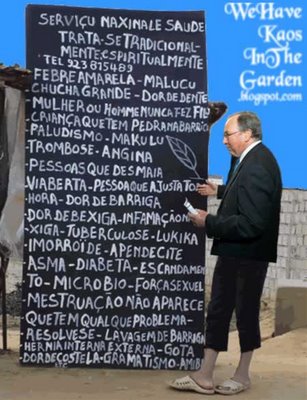 SERVIÇU NAXINALE SAUDE
TRATA-SE TRADICIONAL-
MENTE, ESPIRITUALMENTE
TEL 923 815489
FEBRE AMARELA-MALUCU
CHUCHA GRANDE-DOR DE DENTE
MULHER OU HOMME NUNCA FEZ FILH
CRIANÇA QUE TEM PEDRA NA BARRIGA
PALUDISMO-MAKULU
TROMBOSE-ANGINA
PESSOAS QUE DESMAIA
VIABERTA-PESSOA QUE AJUSTA TO
HORA-DOR DE BARRIGA
DOR DE BEXIGA-INFAMAÇÃO
XIGA-TUBERCULOSE-LUKIKA
IMORROÍ DE-APENDECITE
ASMA-DIABETA-ESCANDAMEN
TO-MICROBIO-FORÇA SEXUEL
MESTRUAÇÃO NÃO APARECE
QUE TEM QUALQUE PROBLEMA-
RESOLVESE-LAVAGEM DE BARRIGA
HERNIA INTERNA EXTERNA-GOTA
DOR DE COSTELA-GRAMATISMO-AMIBA
ETC
WeHave
Kaos
InThe
Garden
.blogspot.com